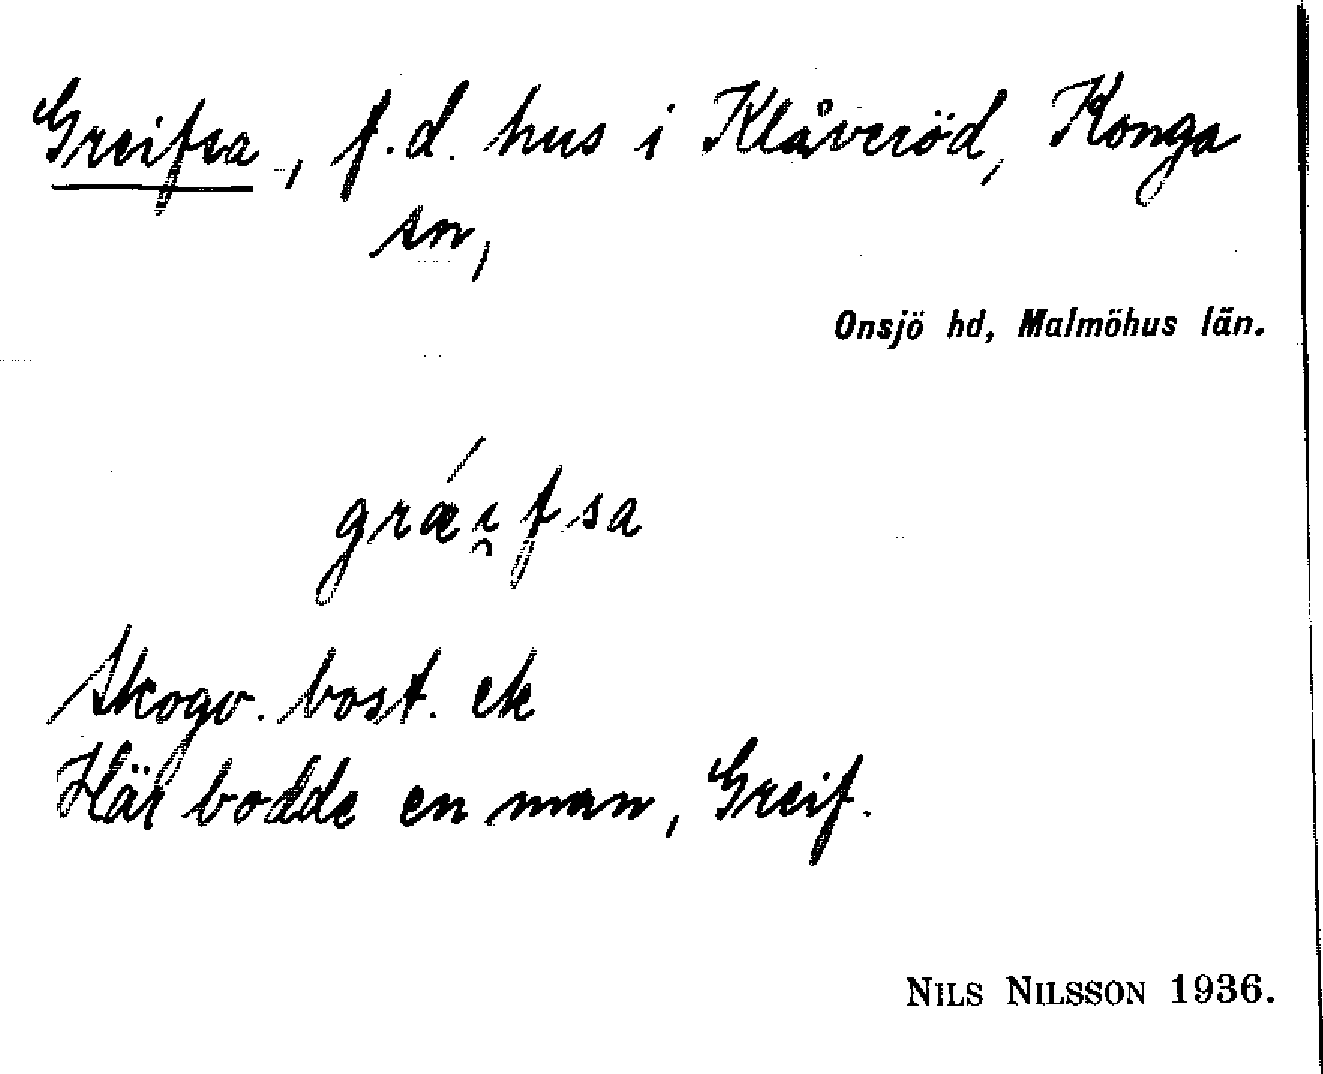 Greifsa, f.d. hus i Klåveröd, Konga
sn,
Onsjö hd, Malmöhus län.
grǽi̯fsa
Skogv. bost. ek
Här bodde en man, Greif.
NILS NILSSON 1936.